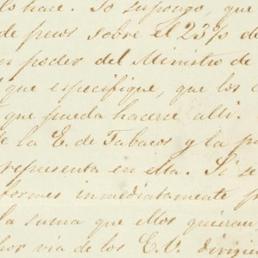 lo hace. Yo supongo, que
de pesos sobre el 23% de
poder del Ministro de
que especifique, que los
que pueda hacerse alli.
de la E. de Tabacos y la
representa en ella. Si se
formes inmediatamente
la suma que ellos quieran
por via de los E.U. dirigi